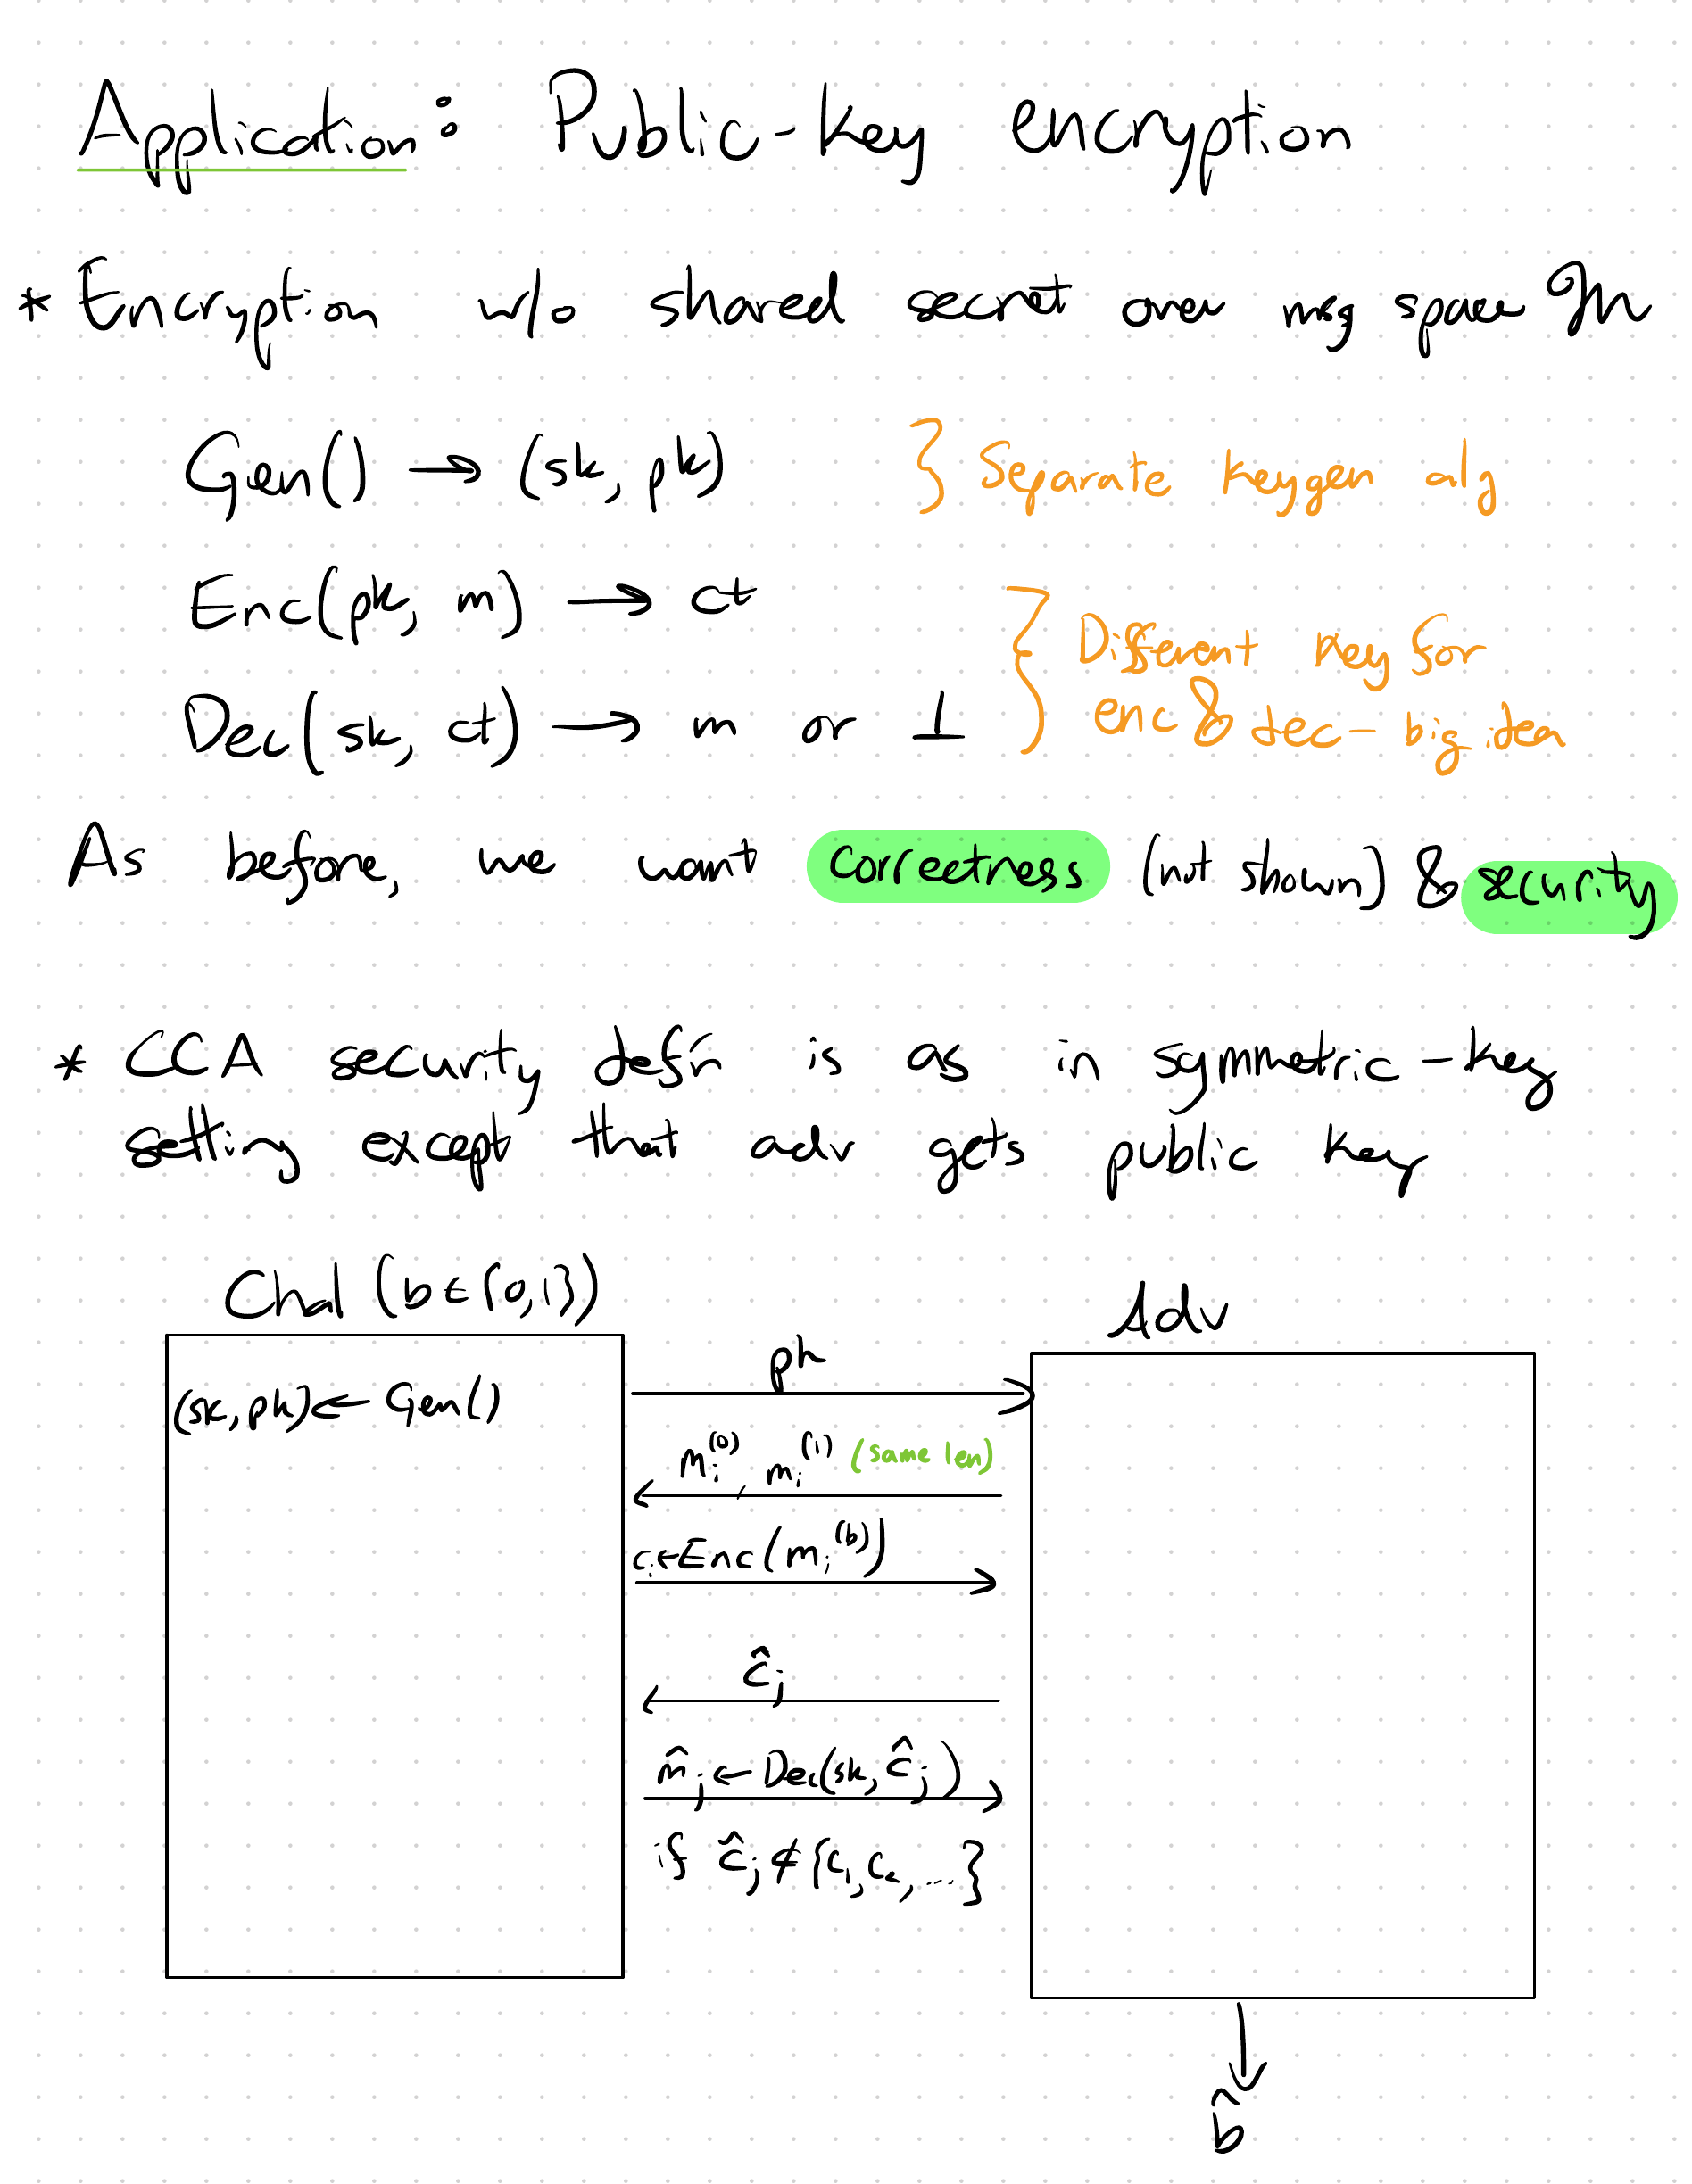 Application: Public-key encryption
* Encryption w/o shared secret over msg space M
Gen() → (sk, pk) } Separate keygen alg
Enc(pk, m) → ct
Dec(sk, ct) → m or ⊥ } Different key for
enc & dec - big idea
As before, we want correctness (not shown) & security
* CCA security def'n is as in symmetric-key
setting except that adv gets public key
Chal (b ∈ {0,1})
Adv
(sk, pk) ← Gen()
pk
m_i^(0), m_i^(1) (same len)
c_i ← Enc(m_i^(b))
ĉ_j
m̂_j ← Dec(sk, ĉ_j)
if ĉ_j ∉ {c_1, c_2, ...}
b̂